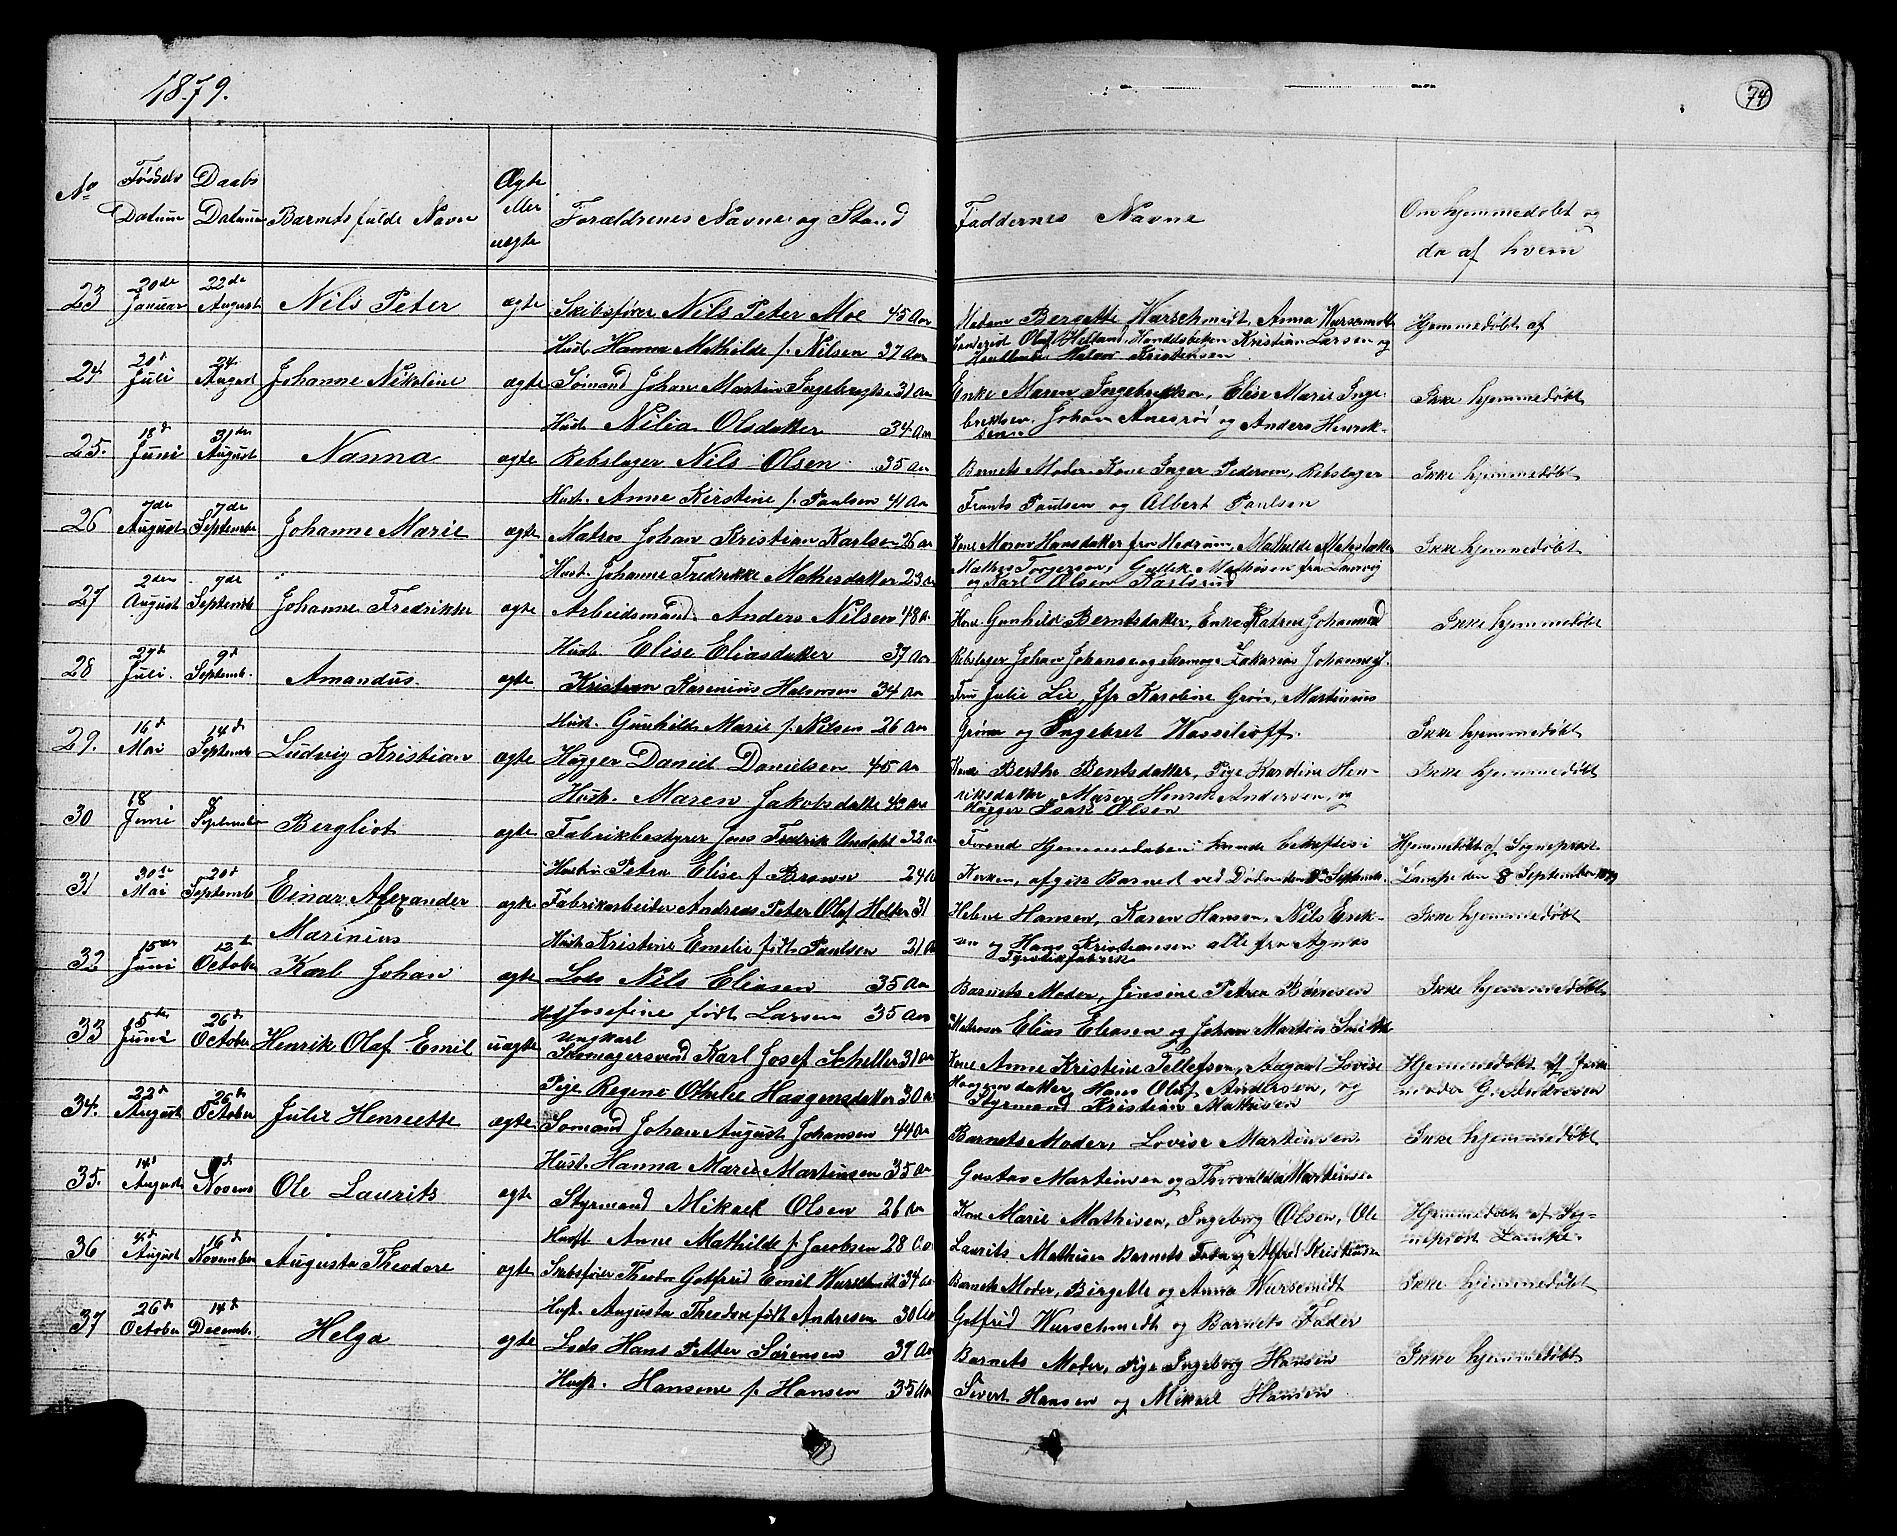 1879.
74
No
Fødsels Datum
Daabs Datum
Barnets fulde Navn
Ægte eller uægte
Forældrenes Navne og Stand
Faddernes Navne
Om hjemmedøbt og da af hvem
23 20de Januar 22de August Nils Peter ægte Skibsfører Nils Peter Moe 45 Aar
Hust. Hanna Mathilde f. Nilsen 37 Aar
Madam Bergette Wurschmidt, Anna Wurschmidt
Olaf Helland, Kristian Larsen og
Kristensen
Hjemmedøbt af
24 20d Juli 24 August Johanne Nikoline ægte Sømand Johan Martin Ingebregtsen 31 Aar
Hust. Nilia Olsdatter 34 Aar
Enke Maren Ingebrektsen, Elise Marie Inge-
brektsen, Johan Anesrød og Anders Henrik-
sen
Ikke hjemmedøbt
25. 18d Juni 31te August Nanna ægte Rebslager Nils Olsen 35 Aar
Hust. Anne Kirstine f. Paulsen 41 Aar
Barnets Moder, Kone Inger Pedersen, Rebslager
Frants Paulsen og Albert Paulsen
Ikke hjemmedøbt
26 7de August 7de September Johanne Marie ægte Matros Johan Kristian Karlsen 26 Aar
Hust. Johanne Fredrikke Mathisdatter 23 Aar
Kone Maren Hansdatter fra Hedrum, Mathilde Mathisdatter
Mathis Torgersen, Gullik Mathisen fra Laurvig
og Karl Olsen Karlsrud
Ikke hjemmedøbt
27 2den August 7de September Johanne Fredrikke ægte Arbeidsmand Anders Nilsen 48 Aar
Hust. Elise Eliasdatter 37 Aar
Kone Gunhild Berntsdatter, Enke Katrine Johannesd
Rebslager Johan Johansen og Skomager Zakarias Johannesen
Ikke hjemmedøbt
28 29de Juli. 9d Septemb. Amandus. ægte Kristian Kasenius Halvorsen 34 Aar
Hust. Gunhilde Marie f. Nilsen 26 Aar
Fru Julie Lie, Jfr Karoline Grøn, Martinius
Grøn og Engebret Hasselhoff.
Ikke hjemmedøbt
29. 16d Mai 14d September Ludvig Kristian ægte Hugger Daniel Danielsen 45 Aar
Hust. Maren Jakobsdatter 42 Aar
Kone Berthe Berntsdatter, Pige Karoline Hen-
riksdatter, Murer Henrik Andersen, og
Hugger Isak Olsen
Ikke hjemmedøbt
30 18 Juni 8 September Bergliot ægte Fabrikbestyrer Jens Fredrik Undahl 32 Aar
Hustru Petra Elise f. Brown 24 Aar
Forend Hjemmedaaben kunde bekræftes i
Kirken, afgik Barnet ved Døden den September
Hjemmedøbt af Sogneprest
Lampe den 8 September 1879
31 30te Mai 20d September Einar Alexander ægte Fabrikarbeider Andreas Peter Olaf Holter 31
Marinius
Hust. Kristine Emelie født Paulsen 21 Aar
Helene Hansen, Karen Hansen, Nils Erik-
sen og Hans Kristiansen alle fra Agnæs
Fyrstikfabrik
Ikke hjemmedøbt
32 15de Juni 12te October Karl Johan ægte Lods Nils Eliasen 35 Aar
Hust. Josefine født Larsen 35 Aar
Barnets Moder, Jensine Petrea Børresen
Matroser Elias Eliasen og Johan Martin Smitt
Ikke hjemmedøbt
33 5te Juni 26de October Henrik Olaf Emil uægte Ungkarl
Skomagersvend Karl Josef Scheller 31 Aar
Pige Regine Othelie Haagensdatter 30 Aar
Kone Anne Kristine Tellefsen, August Lovise
Haagensdatter, Hans Olaf Andersen, og
Styrmand Kristian Mathisen
Hjemmedøbt af Jorde-
moder G. Andresen
34. 22d August 26de October Julie Henriette ægte Sømand Johan August Johansen 44 Aar
Hust. Hanna Marie Martinsen 35 Aar
Barnets Moder, Lovise Martinsen
Gustav Martinsen og Thorvald Martinsen
Ikke hjemmedøbt
35. 14d August 9d Novemb Ole Laurits ægte Styrmand Mikael Olsen 26 Aar
Hust. Anne Mathilde f. Jacobsen 28 Aar
Kone Marie Mathisen, Ingeborg Olsen, Ole
Laurits Mathisen Barnets Fader og Alfred Kristiansen
Hjemmedøbt af Sog-
neprest Lampe.
36 4d August 16d November Augusta Theodore ægte Skibsfører Theodor Gotfrid Emil Wurschmidt 34 Aar
Hust. Augusta Theodore født Andresen 30 Aar
Barnets Moder, Birgette og Anna Wursmidt
Gotfrid Wurschmidt og Barnets Fader
Ikke hjemmedøbt
37 26de October 14d Decemb. Helga ægte Lods Hans Petter Sørensen 39 Aar
Hust. Hansene f. Hansen 35 Aar
Barnets Moder, Pige Ingeborg Hansen
Sivert Hansen og Mikael Hansen
Ikke hjemmedøbt